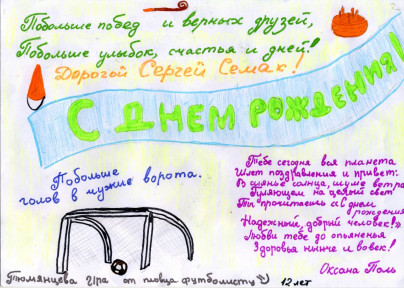 Побольше побед и верных друзей,
Побольше улыбок, счастья и дней!
Дорогой Сергей Семак!
С ДНЕМ РОЖДЕНИЯ!
Побольше
голов в чужие ворота.
Тебе сегодня вся планета
Шлет поздравления и привет:
В сиянье солнца, шуме ветра
на целый свет
Ты прочитаешь: «С днем
рождения
Надежный, добрый человек!»
Любви тебе до опьяненья
Здоровья ныне и вовек!
Оксана Поль
Тюмянцева Ира от пловца футболисту
12 лет